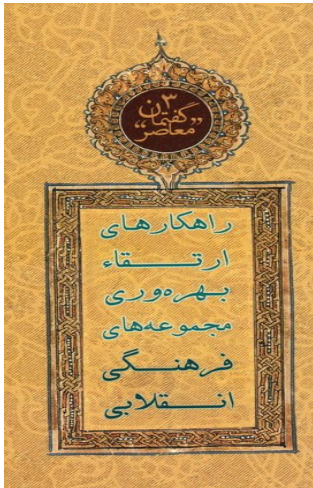 گفتمان ۳
„معاصر“
راهکارهای
ارتقاء
بهره‌وری
مجموعه‌های
فرهنگی
انقلابی